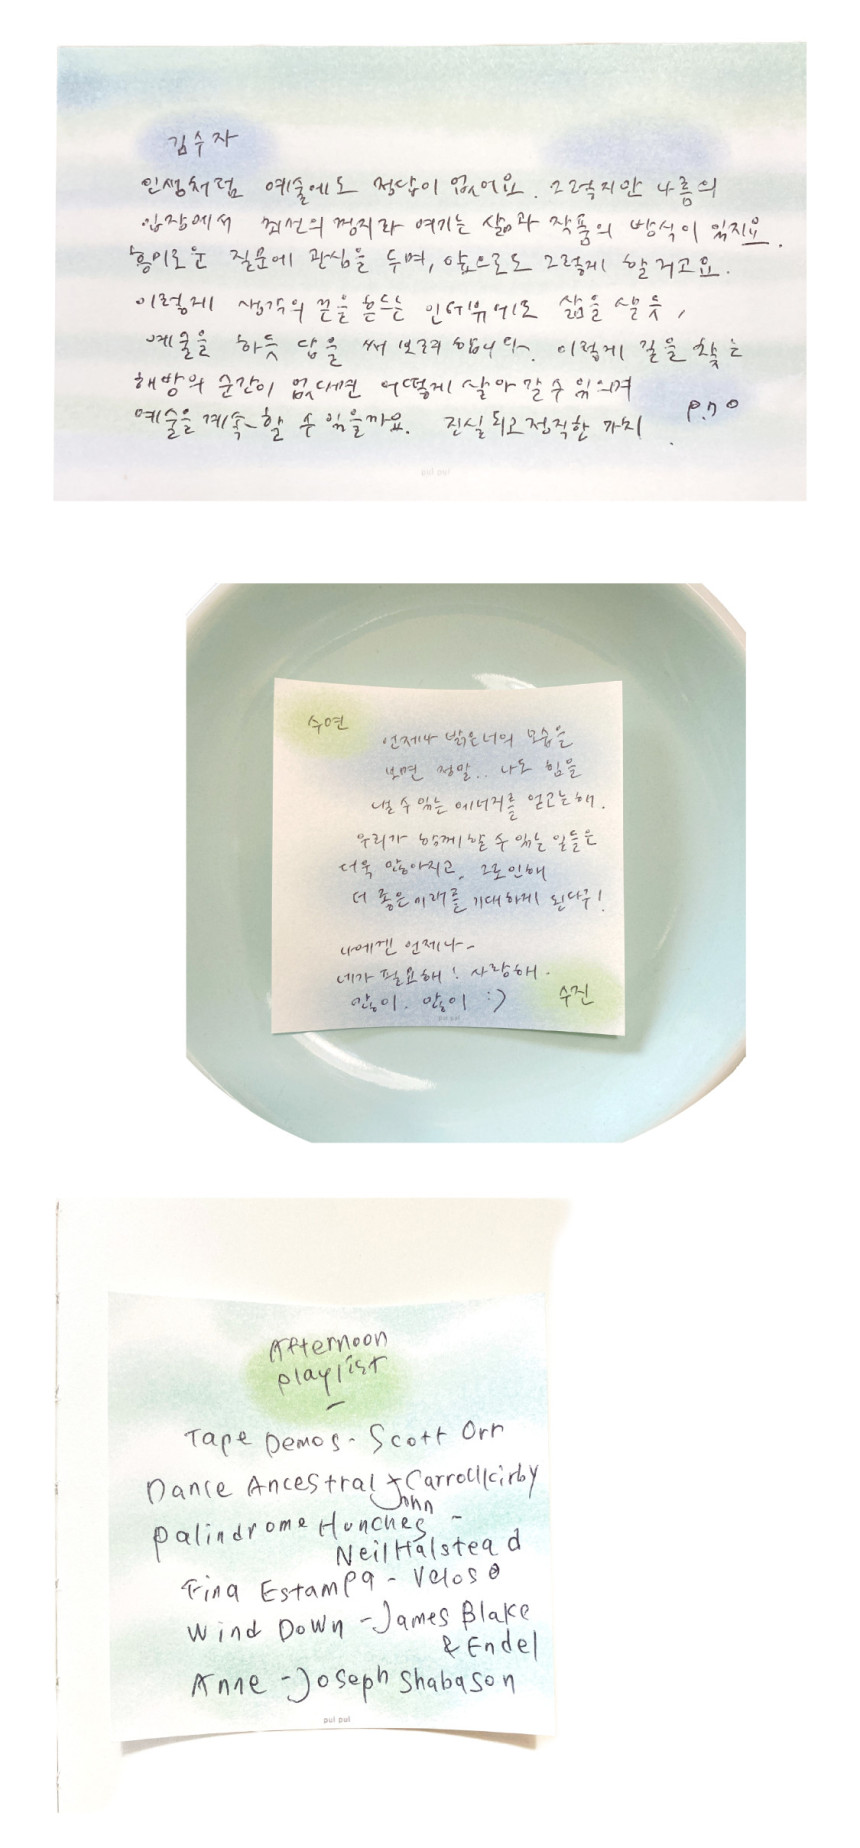 김수자
인생처럼 예술에도 정답이 없어요. 그렇지만 나름의
입장에서 최선의 경지라 여기는 삶과 작품의 방식이 있지요.
흥미로운 질문에 관심을 두며, 앞으로도 그렇게 할 거고요.
이렇게 생각의 끈을 흔드는 인터뷰에도 삶을 살듯,
예술을 하듯 답을 써 보려 합니다. 이렇게 길을 찾는
해방의 순간이 없다면 어떻게 살아 갈 수 있으며
예술을 계속 할 수 있을까요. 진실되고 정직한 가치. P.70
pul pul
수연
언제나 밝은 너의 모습을
보면 정말.. 나도 힘을
낼 수 있는 에너지를 얻고는 해.
우리가 함께 할 수 있는 일들은
더욱 많아지고, 그로인해
더 좋은 미래를 기대하게 된다구!
나에겐 언제나~
네가 필요해! 사랑해.
많이. 많이 :)
수진
pul pul
Afternoon
playlist
Tape Demos - Scott Orr
Dance Ancestral - John Carroll Kirby
Palindrome Hunches -
Neil Halstead
Fina Estampa - Veloso
Wind Down - James Blake
& Endel
Anne - Joseph Shabason
pul pul